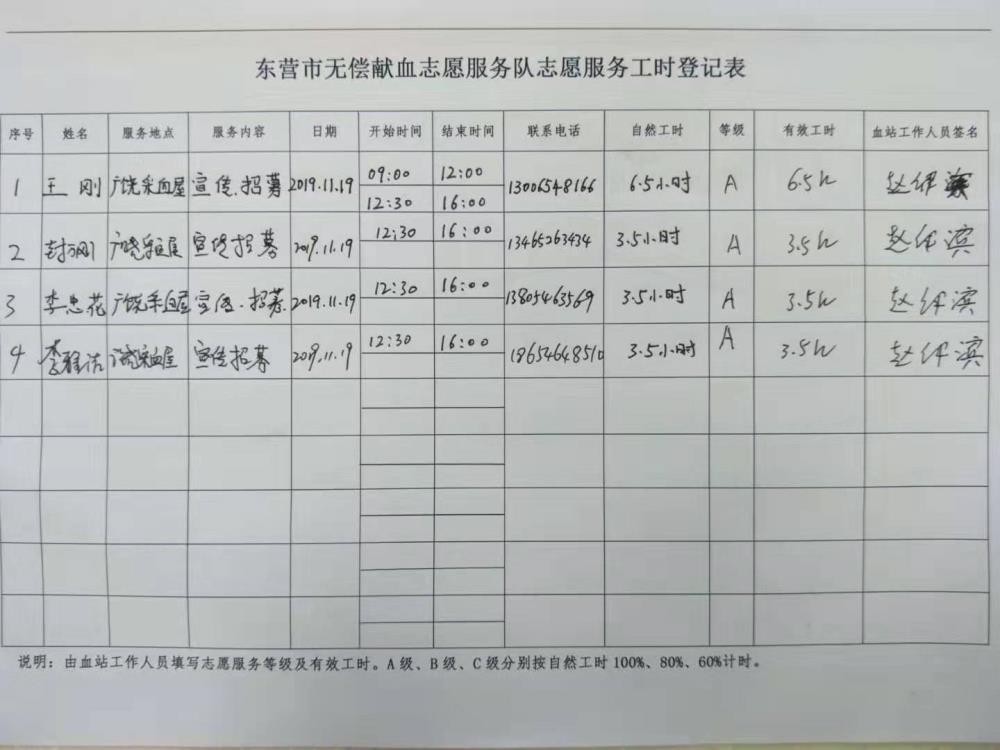 东营市无偿献血志愿服务队志愿服务工时登记表
序号 姓名 服务地点 服务内容 日期 开始时间 结束时间 联系电话 自然工时 等级 有效工时 血站工作人员签名
1 王刚 广饶采血屋 宣传.招募 2019.11.19 09:00 12:00 13006548166 6.5小时 A 6.5h 赵伊滨
12:30 16:00
2 封刚 广饶采血屋 宣传招募 2019.11.19 12:30 16:00 13465263434 3.5小时 A 3.5h 赵伊滨
3 李忠花 广饶采血屋 宣传.招募 2019.11.19 12:30 16:00 13805463569 3.5小时 A 3.5h 赵伊滨
4 李雅洁 广饶采血屋 宣传招募 2019.11.19 12:30 16:00 18654648510 3.5小时 A 3.5h 赵伊滨
说明：由血站工作人员填写志愿服务等级及有效工时。A级、B级、C级分别按自然工时100%、80%、60%计时。